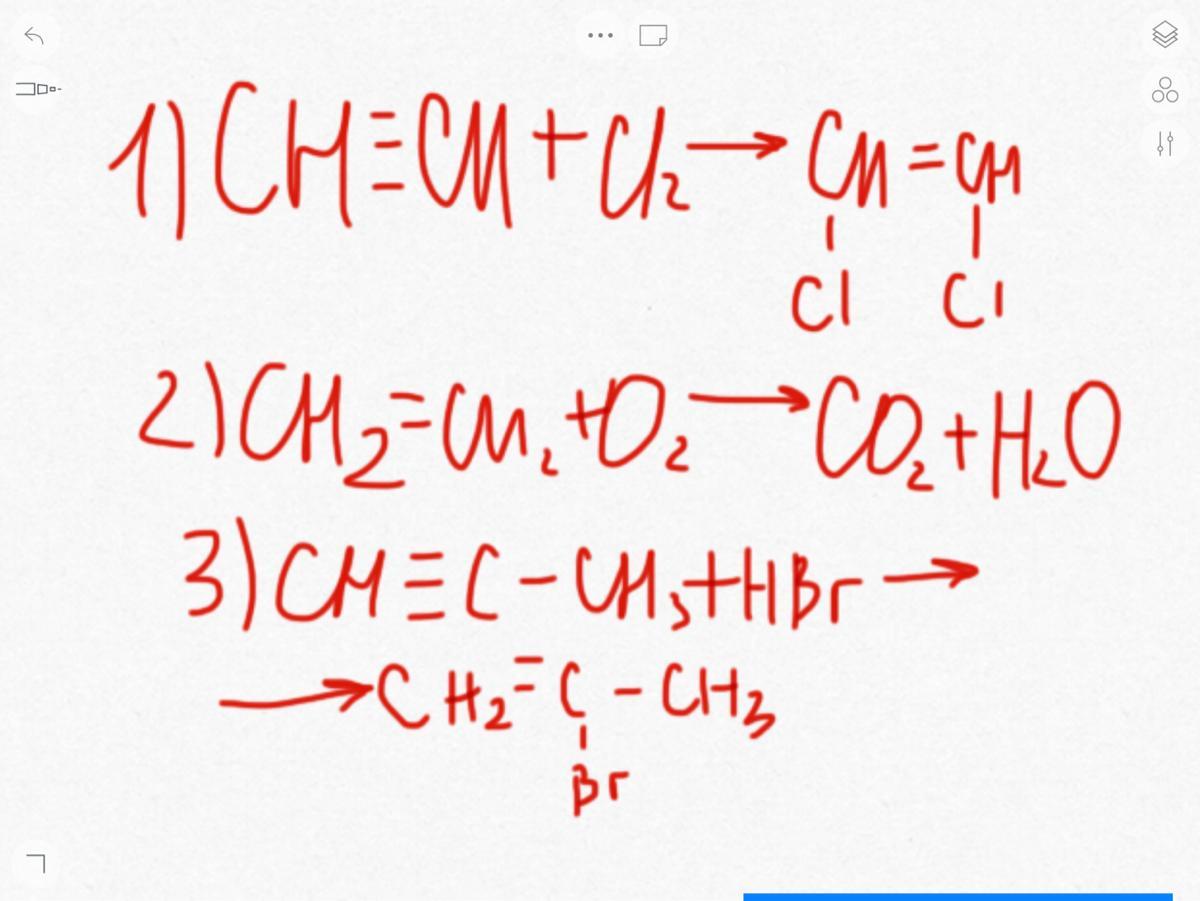 1) CH≡CH + Cl₂ → CH = CH
Cl Cl
2) CH₂=CH₂ + O₂ → CO₂ + H₂O
3) CH ≡ C - CH₃ + HBr →
→ CH₂ = C - CH₃
Br